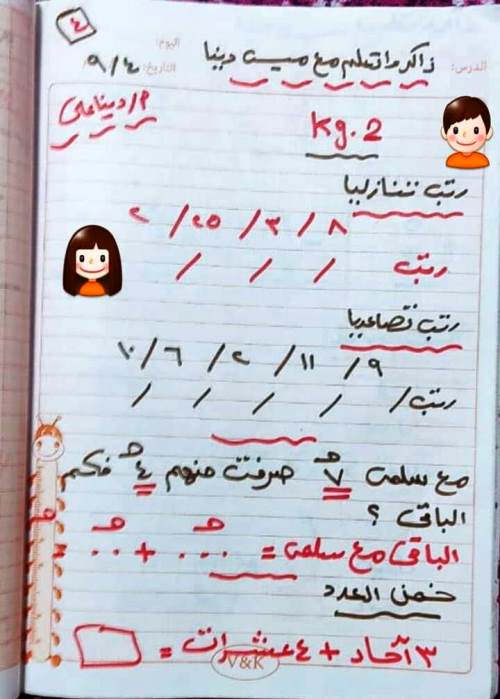 ٤
الدرس: ذاكر واتعلم مع ميس دينا
اليوم:
التاريخ: ٩/٤
م/ دينا على
Kg.2
رتب تنازليا
٨ / ٣ / ٢٥ / ٢
رتب / / /
رتب تصاعديا
٩ / ١١ / ٢ / ٦ / ١٠
رتب / / / / /
مع سلمى ٧ هـ صرفت منهم ٤ هـ فكم
الباقى ؟
الباقى مع سلمى = ... هـ + .. هـ = هـ
خمن العدد
٣ آحاد + ٤ عشرات =
V&K